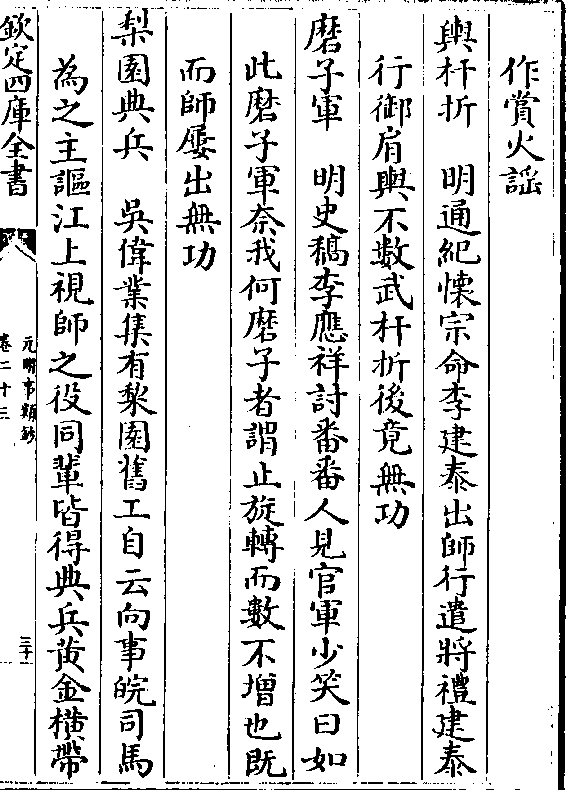 作賞火謡
輿杆折　明通紀懷宗命李建泰出師行遣將禮建泰
行御肩輿不數武杆折後竟無功
磨子軍　明史稿李應祥討番番人見官軍少笑曰如
此磨子軍奈我何磨子者謂止旋轉而數不增也既
而師屢出無功
梨園典兵　吳偉業集有梨園舊工自云向事皖司馬
為之主謳江上視師之役同輩皆得典兵黄金橫帶
欽定四庫全書
元明事類鈔
卷二十三
三十